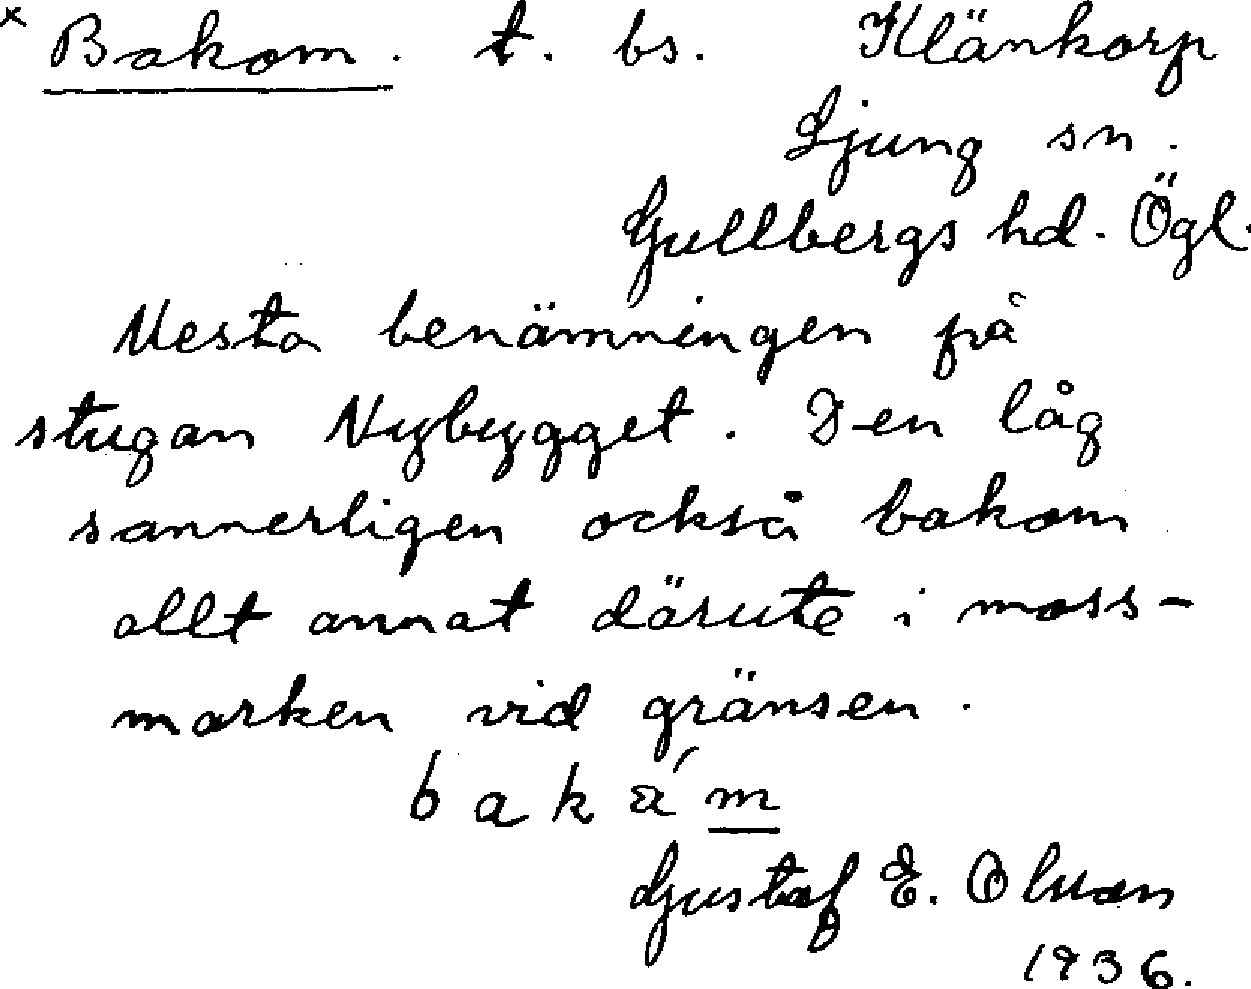 × Bakom. t. bs. Klänkorp
Ljung sn.
Gullbergs hd. Ögl.
Mesta benämningen på
stugan Nybygget. Den låg
sannerligen också bakom
allt annat därute i moss-
marken vid gränsen.
bakám
Gustaf E. Olsson
1936.